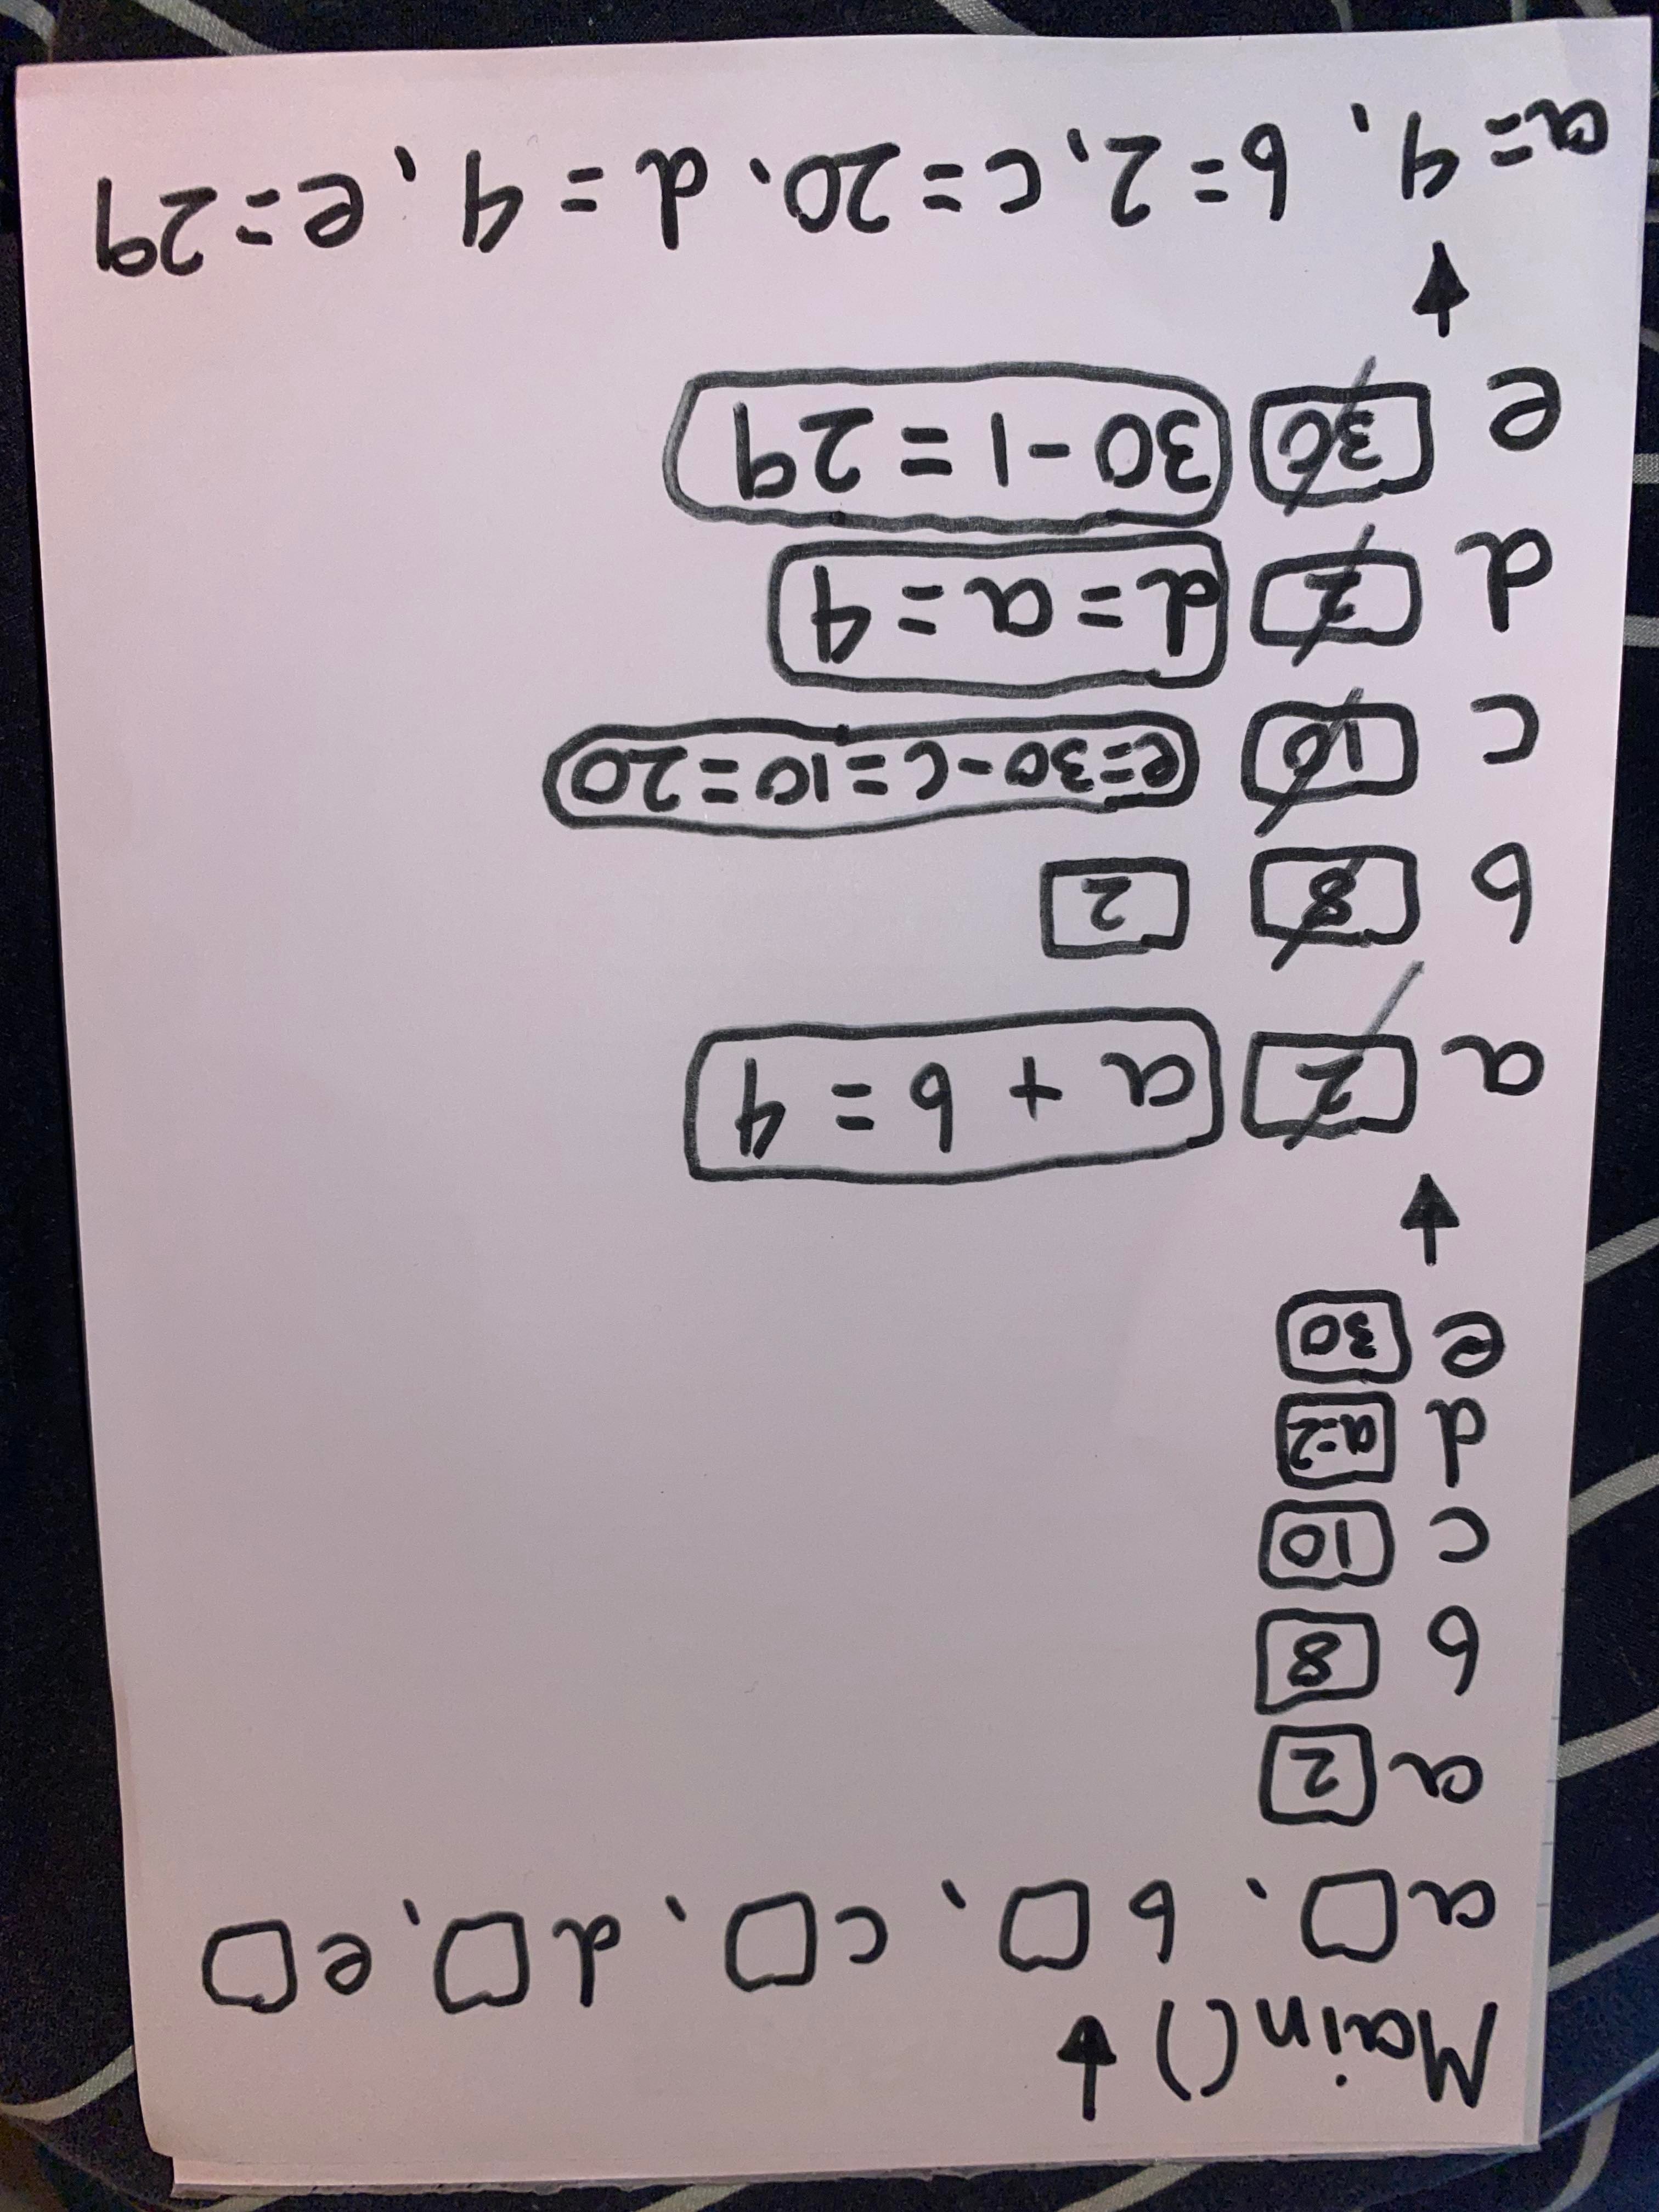 Main() ↓
a □, b □, c □, d □, e □
a 2
b 8
c 10
d a=2
e 30
↓
a 2 a + b = 4
b 8 2
c 10 e=30-c=10=20
d 2 d=a=4
e 30 30-1=29
↓
a=4, b=2, c=20, d=4, e=29